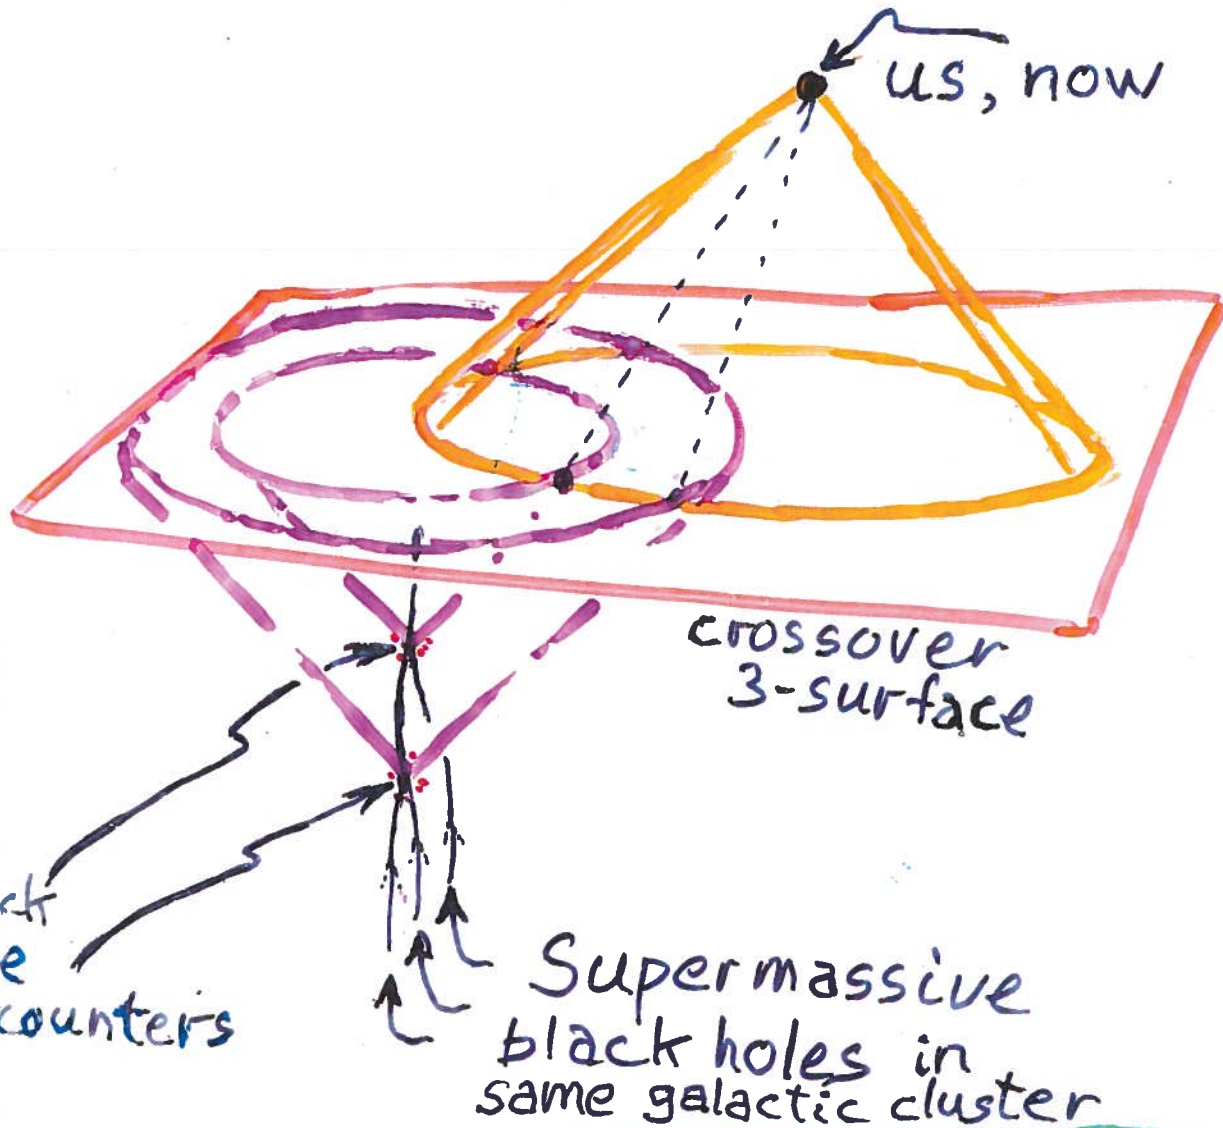 us, now
crossover
3-surface
ck
e
counters
Supermassive
black holes in
same galactic cluster